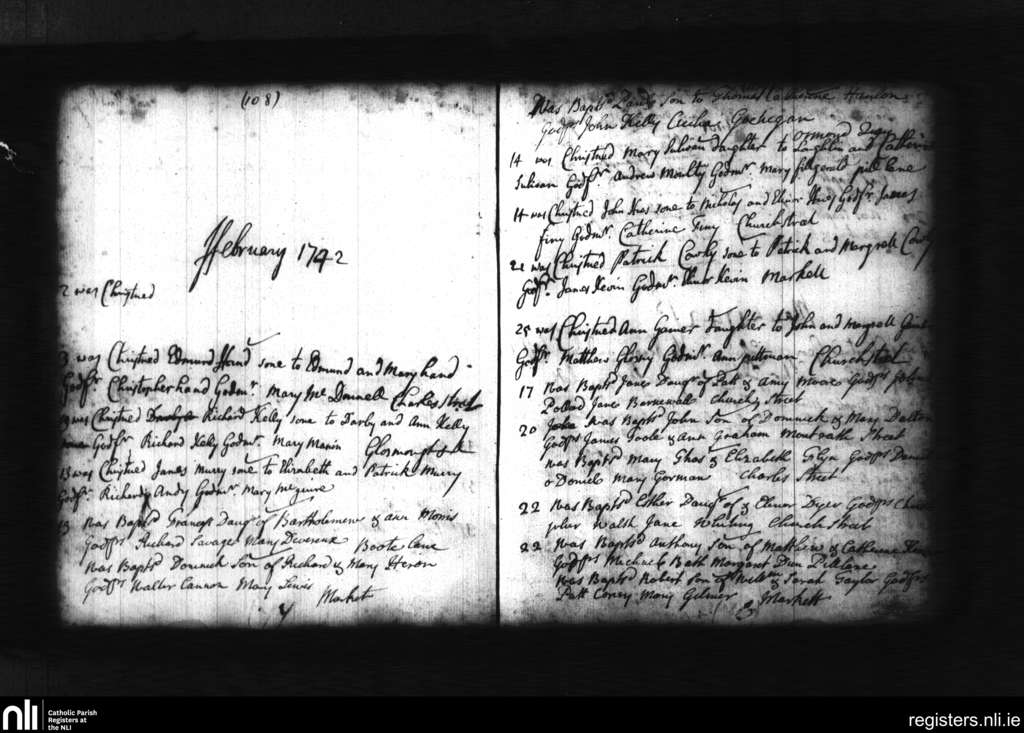 (108)
ffebruary 1742
2 was Christned
3 was Christned Edmund Hand sone to Edmund and Mary hand
Godfr. Christopher hand Godmr. Mary Mc Donnell Charles Street
was Christned Richard Kelly sone to Darby and Ann Kelly
Godfr. Richard Kelly Godmr. Mary Manin
13 was Christned James Murry sone to Elizabeth and Patrick Murry
Godfr. Richard Andy Godmr. Mary Mcguire
13 Was Baptd Francess Daugr of Bartholomew & Ann Morris
Godfrs Richard Savage Mary Devereux Boote Lane
Was Baptd Dominick Son of Richard & Mary Heron
Godfrs Walter Cannon Mary Lewis Market
Was Baptd David Son to Thomas Catherine Hanlon
Godfrs John Kelly Cecilia Gaehegan
Ormond Quay
14 was Christned Mary Sulivan daughter to Laughlin and Catherine
Sulivan Godfr. Andrew Moulty Godmr. Mary fitzgerald pill lane
14 was Christned John sone to Nicholas and Elinor Godfr. James
finy Godmr. Catherine finy Church strat
21 was Christned Patrick Cowly sone to Patrick and Margrett Cowly
Godfr. James Kevin Godmr. Elinor Kevin Markett
25 was Christned Ann Gainer daughter to John and Margrett
Godfr. Matthew Glorny Godmr. Ann pittman Church street
17 Was Baptd Jane Daugr of Patt & Amy Moore Godfrs
Pollard Jane Barnewall Church Street
20 Was Baptd John Son of Dominick & Mary Dalton
Godfrs James Toole & Ann Graham Montrath Street
Was Baptd Mary Thos & Elizabeth Glyn Godfrs Daniel
o Daniel Mary Gorman Charles Street
22 Was Baptd Esther Daugr of & Elenor Dyer Godfrs
Walsh Jane Whiting Church Street
22 Was Baptd Anthony Son of Matthew & Catherine
Godfrs Michael Bath Margaret Dun Pill lane
Was Baptd Robert Son of Willm & Sarah Taylor Godfrs
Patt Coney Mary Gilmer Markett
nli
Catholic Parish
Registers at
the NLI
registers.nli.ie